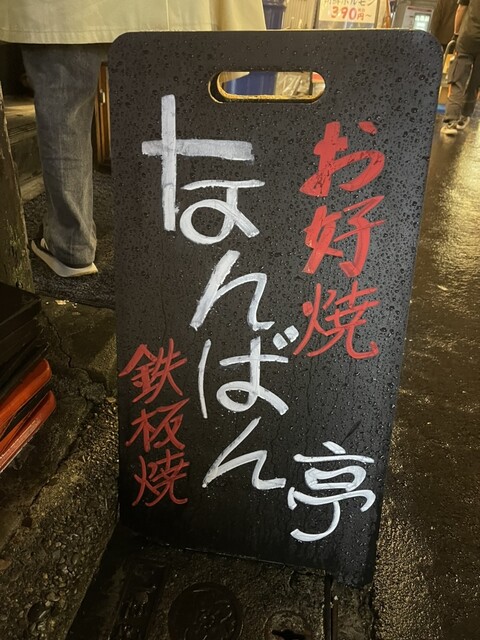 お好焼
なんばん亭
鉄板焼
390円~